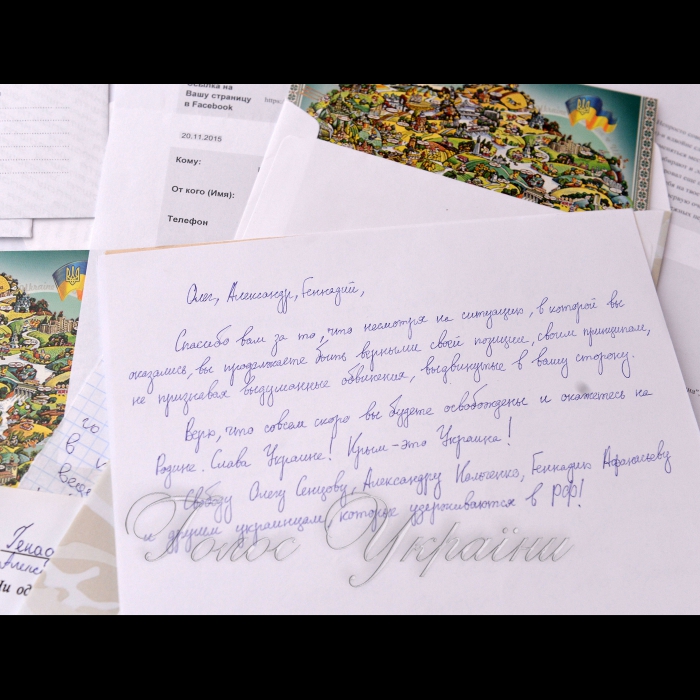 Ссылка на
Вашу страницу
в Facebook
20.11.2015
Кому:
От кого (Имя):
Телефон
Олег, Александр, Геннадий,
Спасибо вам за то, что несмотря на ситуацию, в которой вы
оказались, вы продолжаете быть верными своей позиции, своим принципам,
не признавая выдуманные обвинения, выдвинутые в вашу сторону.
Верю, что совсем скоро вы будете освобождены и окажетесь на
Родине. Слава Украине! Крым - это Украина!
Свободу Олегу Сенцову, Александру Кольченко, Геннадию Афанасьеву
и другим украинцам, которые удерживаются в РФ!
Голос України